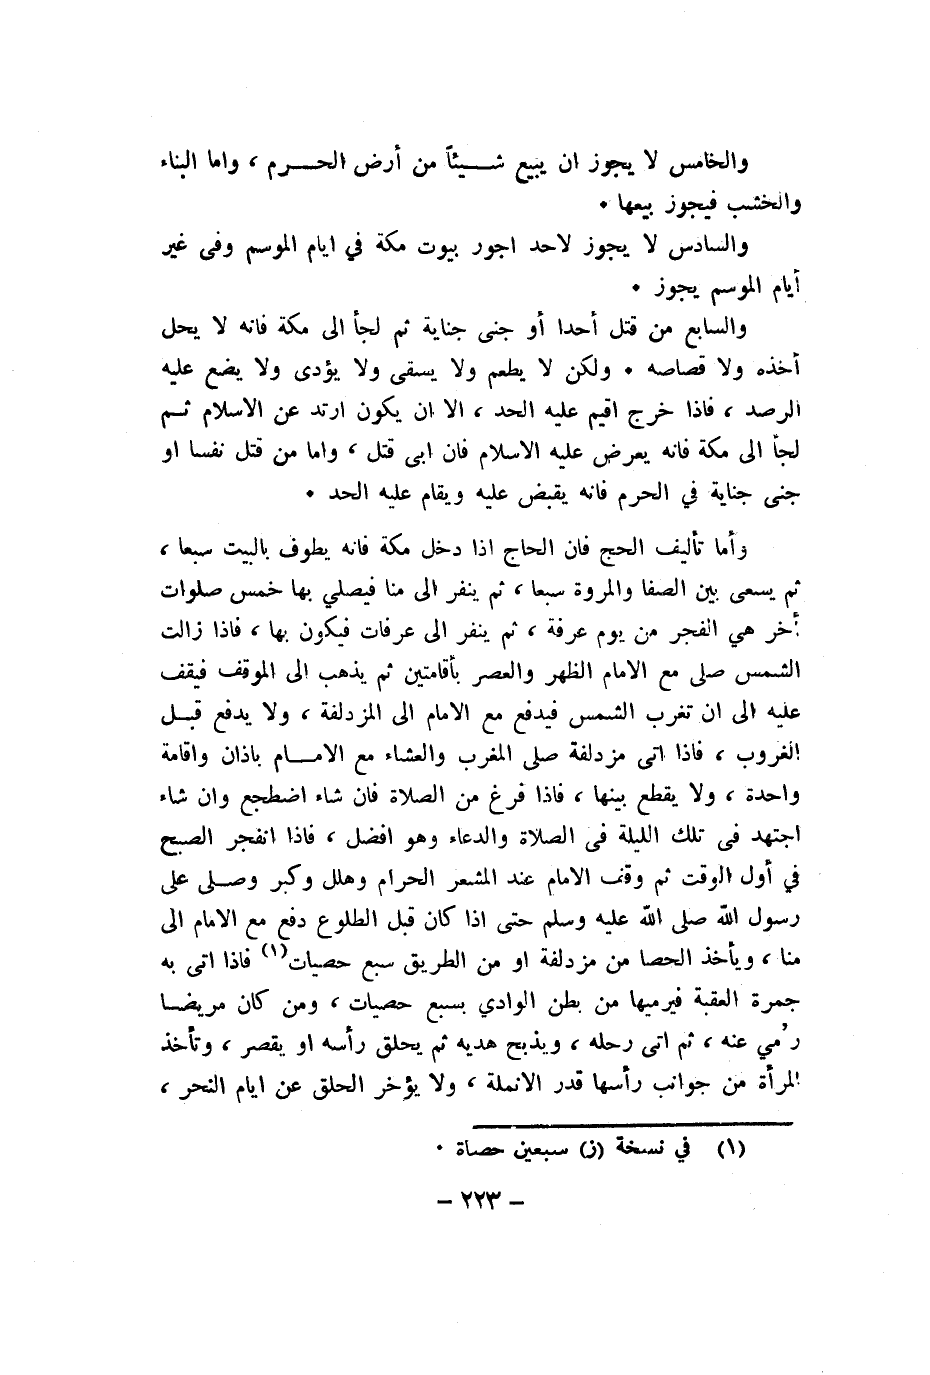 والخامس لا يجوز ان يبيع شــيئاً من أرض الحــرم ، واما البناء
والخشب فيجوز بيعها •
والسادس لا يجوز لاحد اجور بيوت مكة في ايام الموسم وفى غير
أيام الموسم يجوز •
والسابع من قتل أحدا أو جنى جناية ثم لجأ الى مكة فانه لا يحل
أخذه ولا قصاصه • ولكن لا يطعم ولا يسقى ولا يؤدى ولا يضع عليه
الرصد ، فاذا خرج اقيم عليه الحد ، الا ان يكون ارتد عن الاسلام ثــم
لجأ الى مكة فانه يعرض عليه الاسلام فان ابى قتل ، واما من قتل نفسا او
جنى جناية في الحرم فانه يقبض عليه ويقام عليه الحد •
وأما تأليف الحج فان الحاج اذا دخل مكة فانه يطوف بالبيت سبعا ،
ثم يسعى بين الصفا والمروة سبعا ، ثم ينفر الى منا فيصلي بها خمس صلوات
أخر هي الفجر من يوم عرفة ، ثم ينفر الى عرفات فيكون بها ، فاذا زالت
الشمس صلى مع الامام الظهر والعصر بأقامتين ثم يذهب الى الموقف فيقف
عليه الى ان تغرب الشمس فيدفع مع الامام الى المزدلفة ، ولا يدفع قبــل
الغروب ، فاذا اتى مزدلفة صلى المغرب والعشاء مع الامــام باذان واقامة
واحدة ، ولا يقطع بينها ، فاذا فرغ من الصلاة فان شاء اضطجع وان شاء
اجتهد فى تلك الليلة فى الصلاة والدعاء وهو افضل ، فاذا انفجر الصبح
في أول الوقت ثم وقف الامام عند المشعر الحرام وهلل وكبر وصــلى على
رسول الله صلى الله عليه وسلم حتى اذا كان قبل الطلوع دفع مع الامام الى
منا ، ويأخذ الحصا من مزدلفة او من الطريق سبع حصيات(١) فاذا اتى به
جمرة العقبة فيرميها من بطن الوادي بسبع حصيات ، ومن كان مريضــا
رُمي عنه ، ثم اتى رحله ، ويذبح هديه ثم يحلق رأسه او يقصر ، وتأخذ
المرأة من جوانب رأسها قدر الانملة ، ولا يؤخر الحلق عن ايام النحر ،
(١) في نسخة (ز) سبعين حصاة •
– ٢٢٣ –